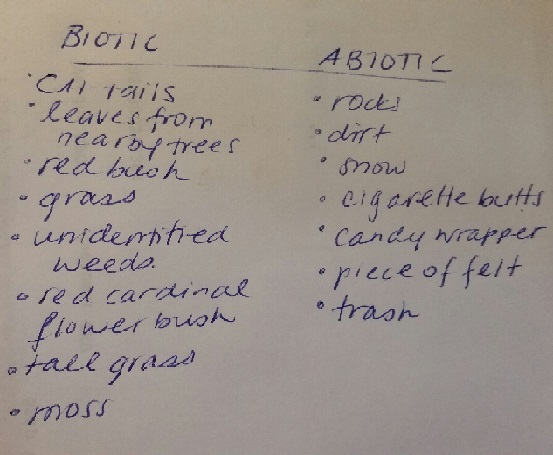 BIOTIC
• Cat tails
• leaves from
nearby trees
• red bush
• grass
• unidentified
weeds.
• red cardinal
flower bush
• tall grass
• moss
ABIOTIC
• rocks
• dirt
• snow
• cigarette butts
• candy wrapper
• piece of felt
• trash